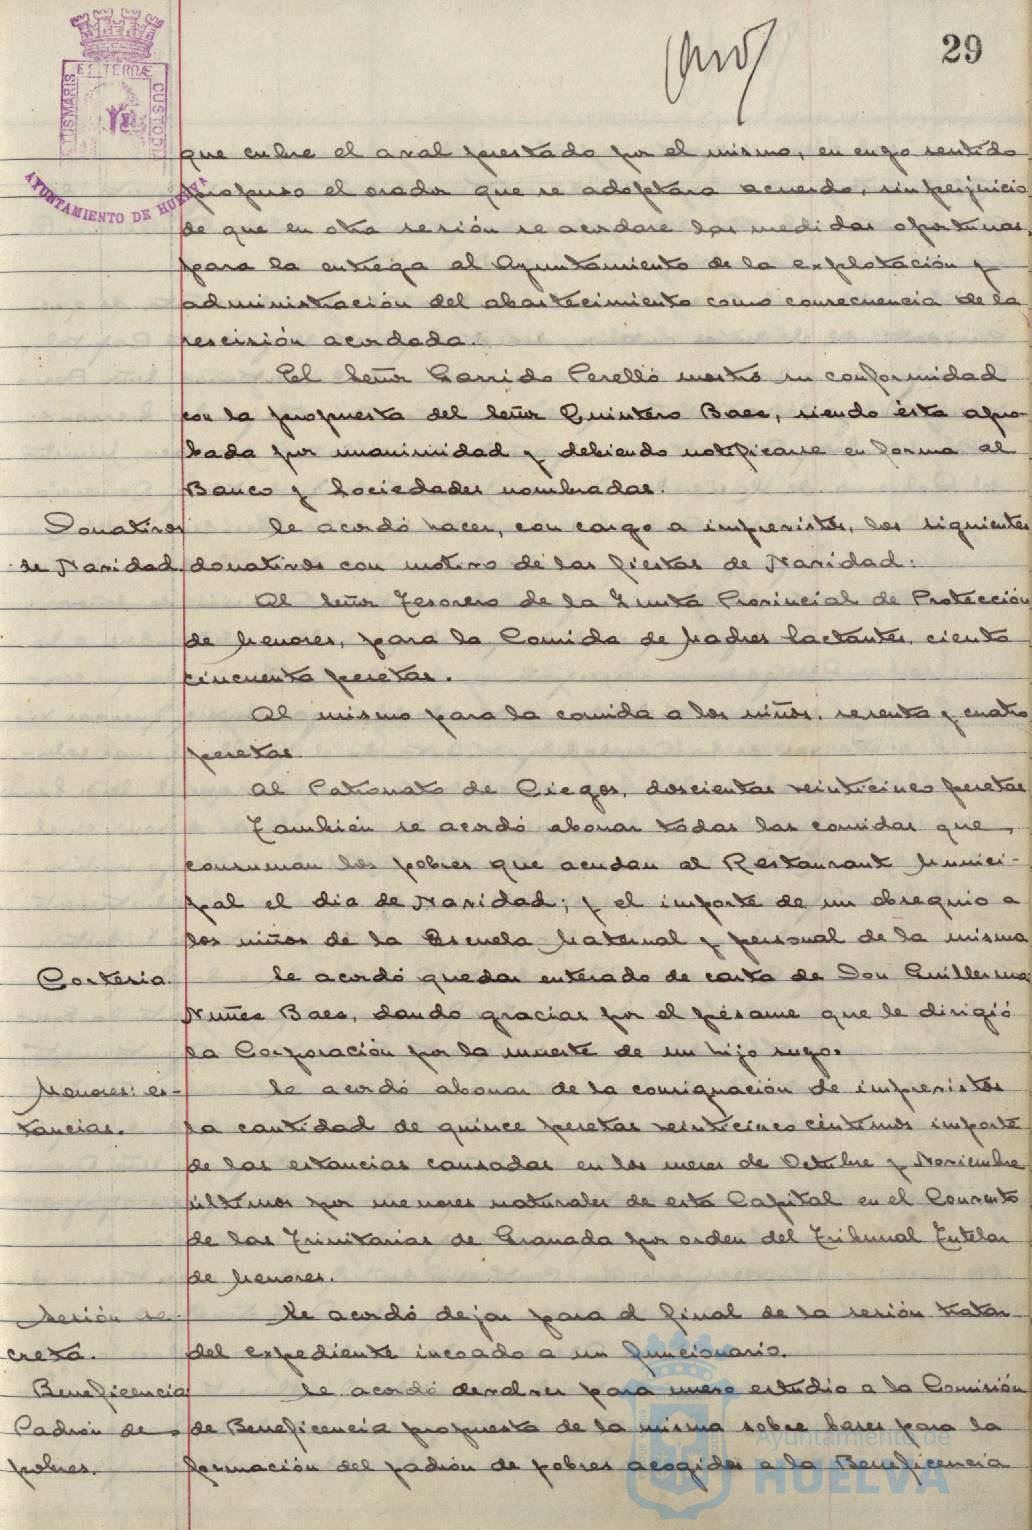 29
PORTUS MARIS ET TERRÆ CUSTODIA
AYUNTAMIENTO DE HUELVA
que cubre el aval prestado por el mismo, en cuyo sentido
propuso el orador que se adoptara acuerdo, sin perjuicio
de que en otra sesión se acordase las medidas oportunas,
para la entrega al Ayuntamiento de la explotación y
administración del abastecimiento como consecuencia de la
rescisión acordada.
El Señor Garrido Perelló mostró su conformidad
con la propuesta del Señor Quintero Baez, siendo ésta apro-
bada por unanimidad y debiendo notificarse en forma al
Banco y Sociedades nombradas.
Donativos
de Navidad
Se acordó hacer, con cargo a imprevistos, los siguientes
donativos con motivo de las fiestas de Navidad:
Al Señor Tesorero de la Junta Provincial de Protección
de Menores, para la Comida de Madres lactantes, ciento
cincuenta pesetas.
Al mismo para la comida a los niños, sesenta y cuatro
pesetas
Al Patronato de Ciegos, doscientas veinticinco pesetas
También se acordó abonar todas las comidas que
consuman los pobres que acudan al Restaurant Munici-
pal el dia de Navidad; y el importe de un obsequio a
los niños de la Escuela Maternal y personal de la misma
Cortesia.
Se acordó quedar enterado de carta de Don Guillermo
Nuñez Baez, dando gracias por el pésame que le dirigió
la Corporación por la muerte de un hijo suyo.
Menores: es-
tancias.
Se acordó abonar de la consignación de imprevistos
la cantidad de quince pesetas veinticinco céntimos importe
de las estancias causadas en los meses de Octubre y Noviembre
últimos por menores naturales de esta Capital en el Convento
de las Trinitarias de Granada por orden del Tribunal Tutelar
de Menores.
Sesión se-
creta.
Se acordó dejar para el final de la sesión tratar
del expediente incoado a un funcionario.
Beneficencia
Padrón de
pobres.
Se acordó devolver para nuevo estudio a la Comisión
de Beneficencia propuesta de la misma sobre bases para la
formación del padrón de pobres acogidos a la Beneficencia
Ayuntamiento de
HUELVA